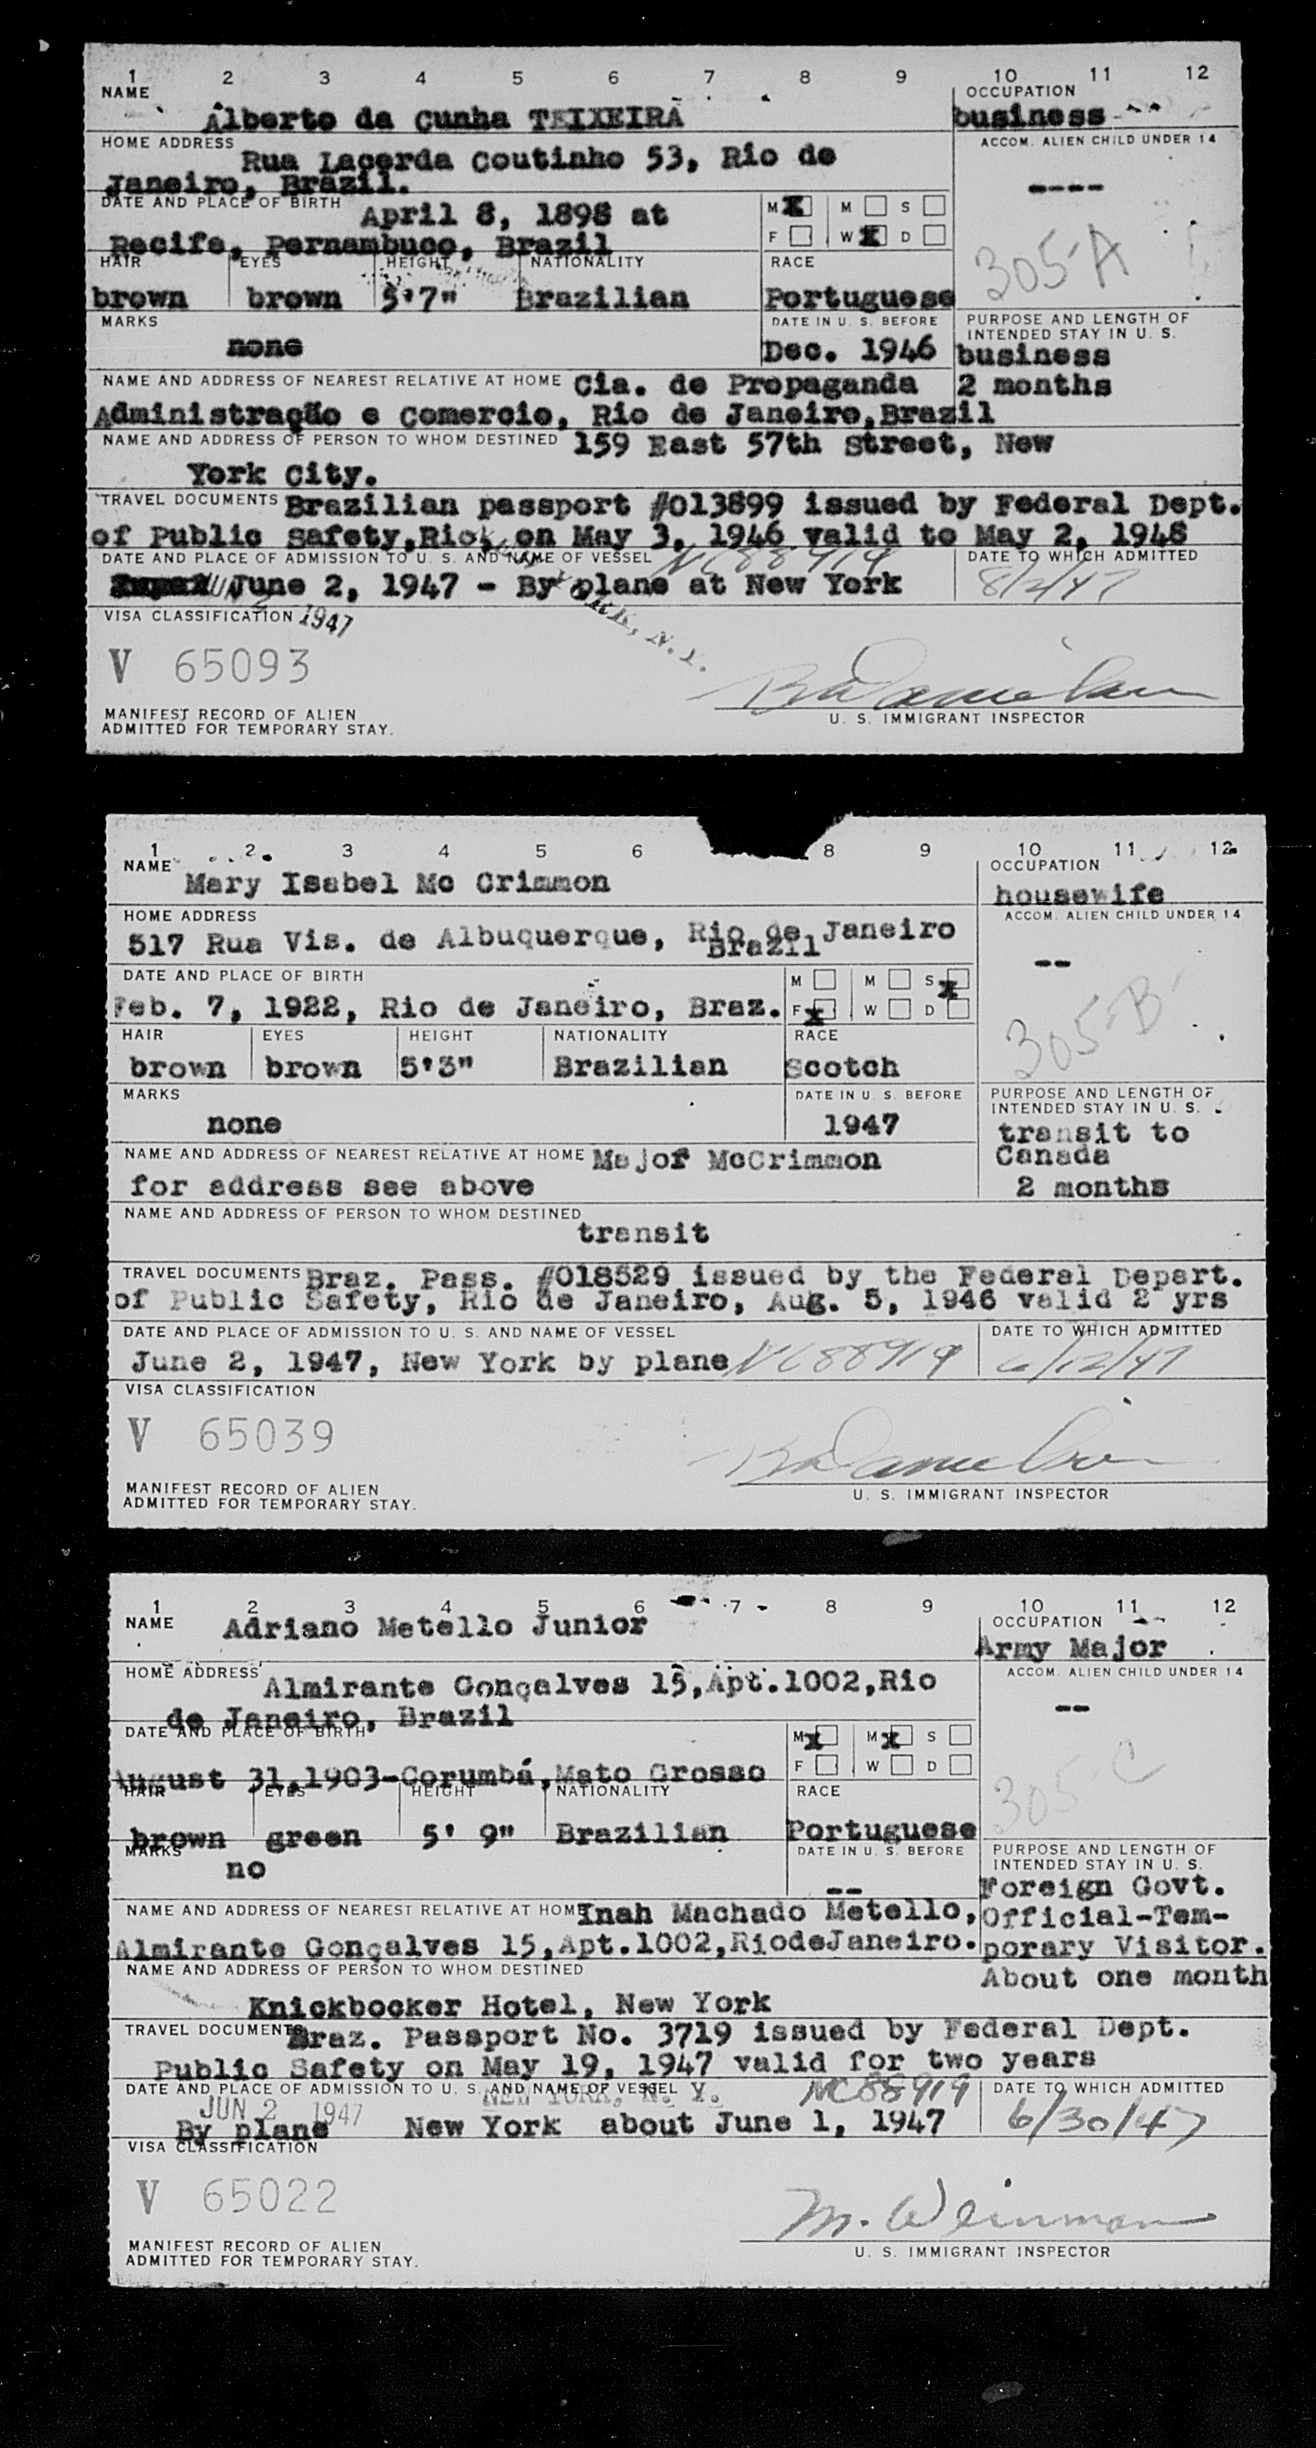 1 2 3 4 5 6 7 8 9 10 11 12
NAME
Alberto da Cunha TEIXEIRA
OCCUPATION
business
HOME ADDRESS Rua Lacerda Coutinho 53, Rio de
Janeiro, Brazil.
ACCOM. ALIEN CHILD UNDER 14
----
DATE AND PLACE OF BIRTH April 8, 1898 at
Recife, Pernambuco, Brazil
M X M S
F W X D
305-A
HAIR EYES HEIGHT NATIONALITY RACE
brown brown 5'7" Brazilian Portuguese
MARKS
none
DATE IN U. S. BEFORE
Dec. 1946
PURPOSE AND LENGTH OF
INTENDED STAY IN U. S.
business
2 months
NAME AND ADDRESS OF NEAREST RELATIVE AT HOME Cia. de Propaganda
Administração e Comercio, Rio de Janeiro,Brazil
NAME AND ADDRESS OF PERSON TO WHOM DESTINED 159 East 57th Street, New
York City.
TRAVEL DOCUMENTS Brazilian passport #013899 issued by Federal Dept.
of Public Safety,Rio, on May 3, 1946 valid to May 2, 1948
DATE AND PLACE OF ADMISSION TO U. S. AND NAME OF VESSEL NC88919
June 2, 1947 - By plane at New York
DATE TO WHICH ADMITTED
8/2/47
VISA CLASSIFICATION 1947
N. Y.
V 65093
MANIFEST RECORD OF ALIEN
ADMITTED FOR TEMPORARY STAY.
U. S. IMMIGRANT INSPECTOR
1 2 3 4 5 6 8 9 10 11 12
NAME
Mary Isabel Mc Crimmon
OCCUPATION
housewife
HOME ADDRESS
517 Rua Vis. de Albuquerque, Rio de Janeiro
Brazil
ACCOM. ALIEN CHILD UNDER 14
--
DATE AND PLACE OF BIRTH
Feb. 7, 1922, Rio de Janeiro, Braz.
M M S X
F X W D
305-B
HAIR EYES HEIGHT NATIONALITY RACE
brown brown 5'3" Brazilian Scotch
MARKS
none
DATE IN U. S. BEFORE
1947
PURPOSE AND LENGTH OF
INTENDED STAY IN U. S.
transit to
Canada
2 months
NAME AND ADDRESS OF NEAREST RELATIVE AT HOME Major McCrimmon
for address see above
NAME AND ADDRESS OF PERSON TO WHOM DESTINED
transit
TRAVEL DOCUMENTS Braz. Pass. #018529 issued by the Federal Depart.
of Public Safety, Rio de Janeiro, Aug. 5, 1946 valid 2 yrs
DATE AND PLACE OF ADMISSION TO U. S. AND NAME OF VESSEL
June 2, 1947, New York by plane NC88919
DATE TO WHICH ADMITTED
6/12/47
VISA CLASSIFICATION
V 65039
MANIFEST RECORD OF ALIEN
ADMITTED FOR TEMPORARY STAY.
U. S. IMMIGRANT INSPECTOR
1 2 3 4 5 6 7 8 9 10 11 12
NAME Adriano Metello Junior
OCCUPATION
Army Major
HOME ADDRESS Almirante Gonçalves 15,Apt.1002,Rio
de Janeiro, Brazil
ACCOM. ALIEN CHILD UNDER 14
--
DATE AND PLACE OF BIRTH
August 31,1903-Corumbá,Mato Grosso
M X M X S
F W D
305 C
HAIR EYES HEIGHT NATIONALITY RACE
brown green 5' 9" Brazilian Portuguese
MARKS
no
DATE IN U. S. BEFORE
--
PURPOSE AND LENGTH OF
INTENDED STAY IN U. S.
Foreign Govt.
Official-Tem-
porary Visitor.
About one month
NAME AND ADDRESS OF NEAREST RELATIVE AT HOME Inah Machado Metello,
Almirante Gonçalves 15,Apt.1002,RiodeJaneiro.
NAME AND ADDRESS OF PERSON TO WHOM DESTINED
Knickbocker Hotel, New York
TRAVEL DOCUMENTS Braz. Passport No. 3719 issued by Federal Dept.
Public Safety on May 19, 1947 valid for two years
DATE AND PLACE OF ADMISSION TO U. S. AND NAME OF VESSEL
NEW YORK, N. Y. NC88919
JUN 2 1947
By plane New York about June 1, 1947
DATE TO WHICH ADMITTED
6/30/47
VISA CLASSIFICATION
V 65022
M. Weinman
MANIFEST RECORD OF ALIEN
ADMITTED FOR TEMPORARY STAY.
U. S. IMMIGRANT INSPECTOR